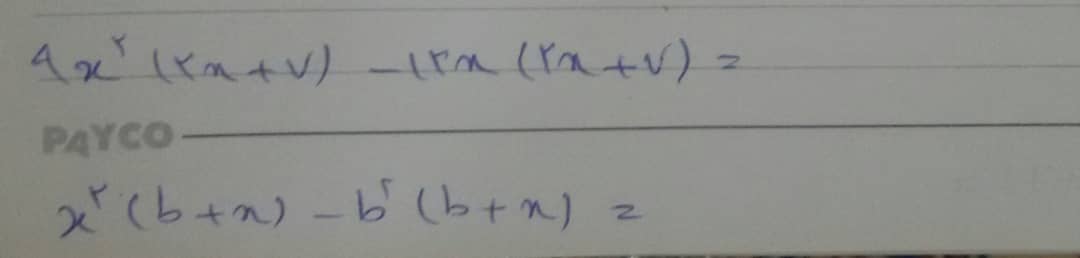 ۹x^۲ (۲x+۷) -۱۲x (۲x+۷) =
PAYCO
x^۲ (b+x) - b^۲ (b+x) =